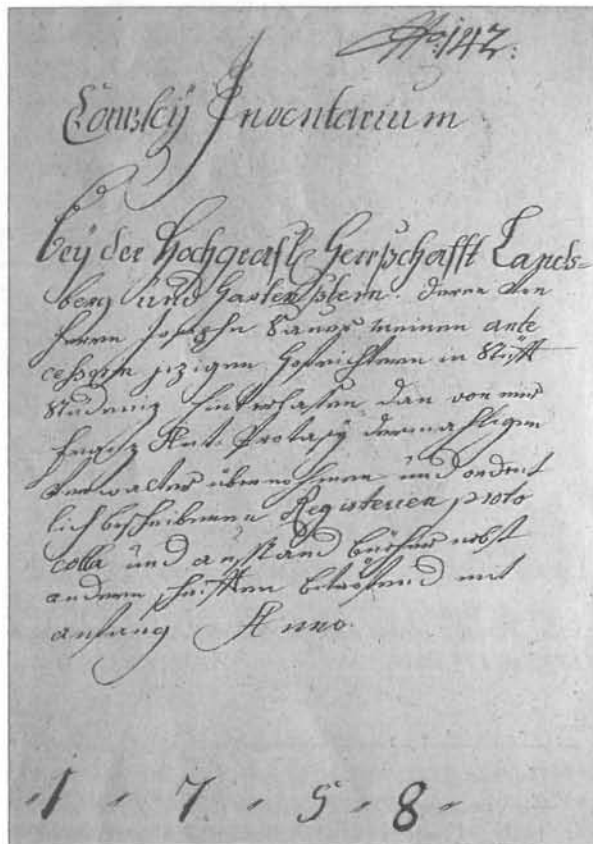 No: 142:
Canzley Inventarium
bey der Hochgräfl Herrschafft Lands=
berg und Hartenstein. deren von
Herrn Joseph Bauer meinen ante
cessorn jezigen Hofrichtern in Stüfft
Studeniz hinterlassen, dan von mir
Franz Ant: Protasÿ dermahligen
Verwalter übernohmen und ordent
lich beschribenen Registeren proto
colla und ausständ bücher nebst
andern schrifften betröfend mit
anfang Anno.
1 - 7 - 5 - 8 -